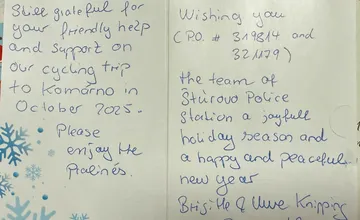 Still grateful for
your friendly help
and support on
our cycling trip
to Komárno in
October 2025.
Please
enjoy the
Pralinés.
Wishing you
(P.O. # 319814 and
321179)
the team of
Štúrovo Police
station a joyfull
holiday season and
a happy and peaceful
new year
Brigitte & Uwe Knipping